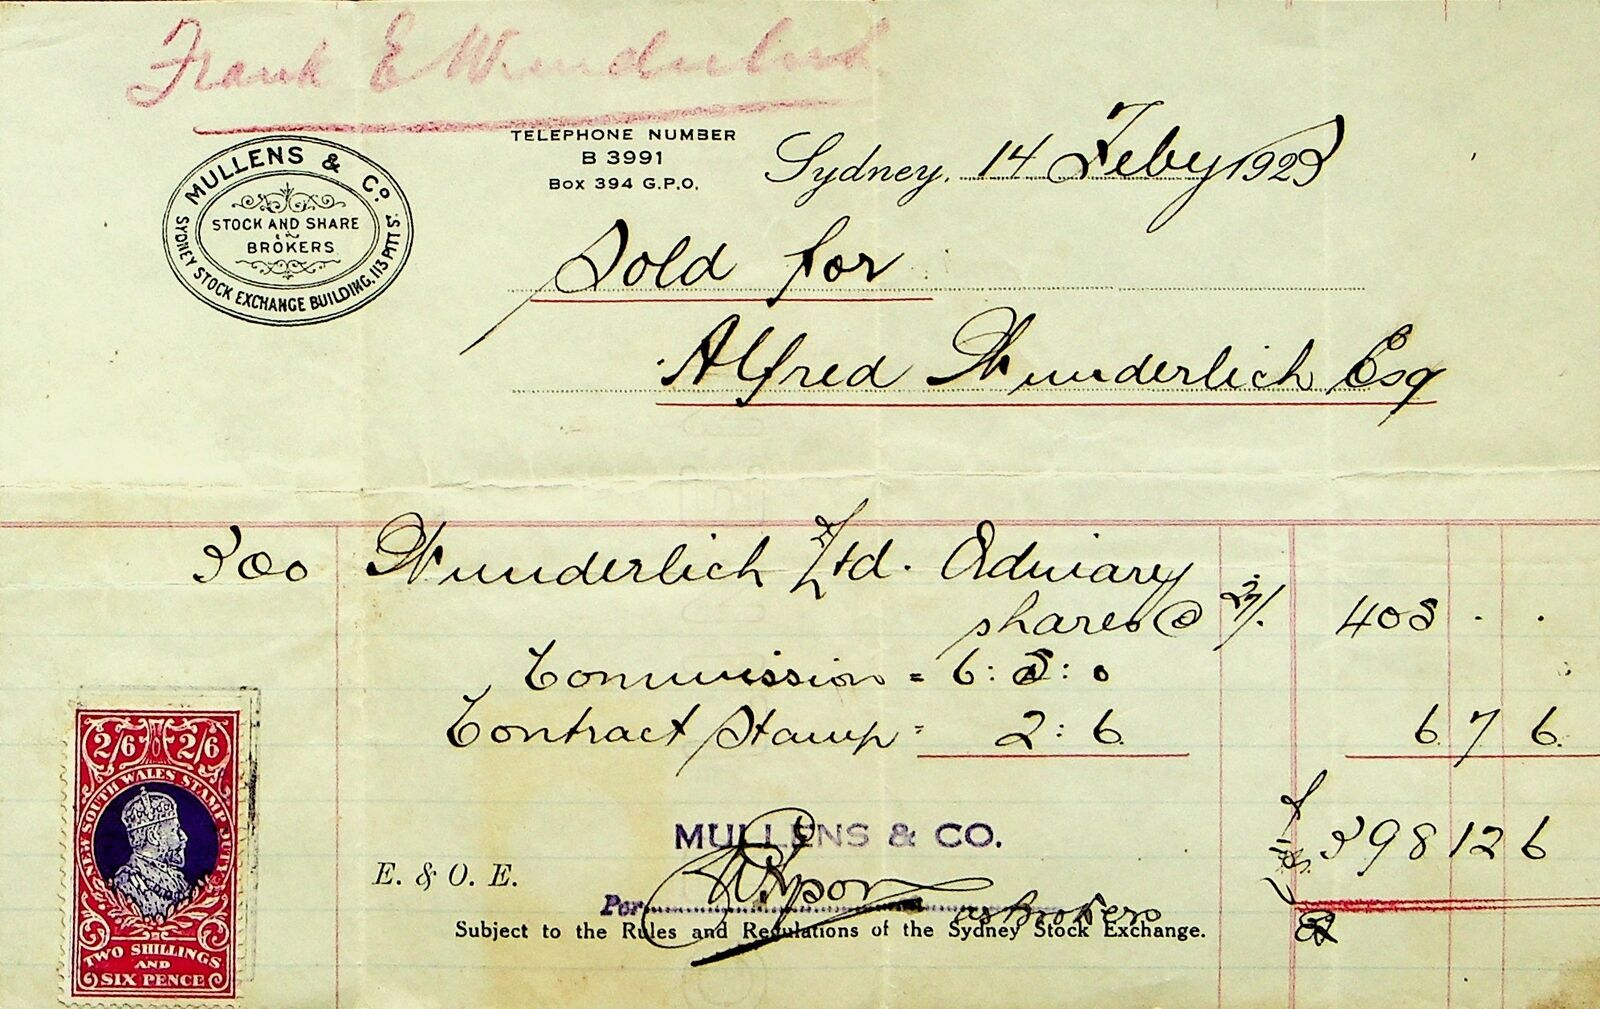 Frank E Wunderlich
TELEPHONE NUMBER
B 3991
BOX 394 G.P.O.
MULLENS & Co.
STOCK AND SHARE
BROKERS
SYDNEY STOCK EXCHANGE BUILDING, 113 PITT ST.
Sydney, 14 Feby 1923
Sold for
Alfred Wunderlich Esq
300 Wunderlich Ltd. Ordinary
shares @ 27/. 405 . .
Commission = 6:5:0
Contract Stamp = 2:6 6 7 6
£ 398 12 6
MULLENS & CO.
E. & O. E.
Por as brokers
Subject to the Rules and Regulations of the Sydney Stock Exchange.
2/6 2/6
NEW SOUTH WALES STAMP DUTY
TWO SHILLINGS
AND
SIX PENCE